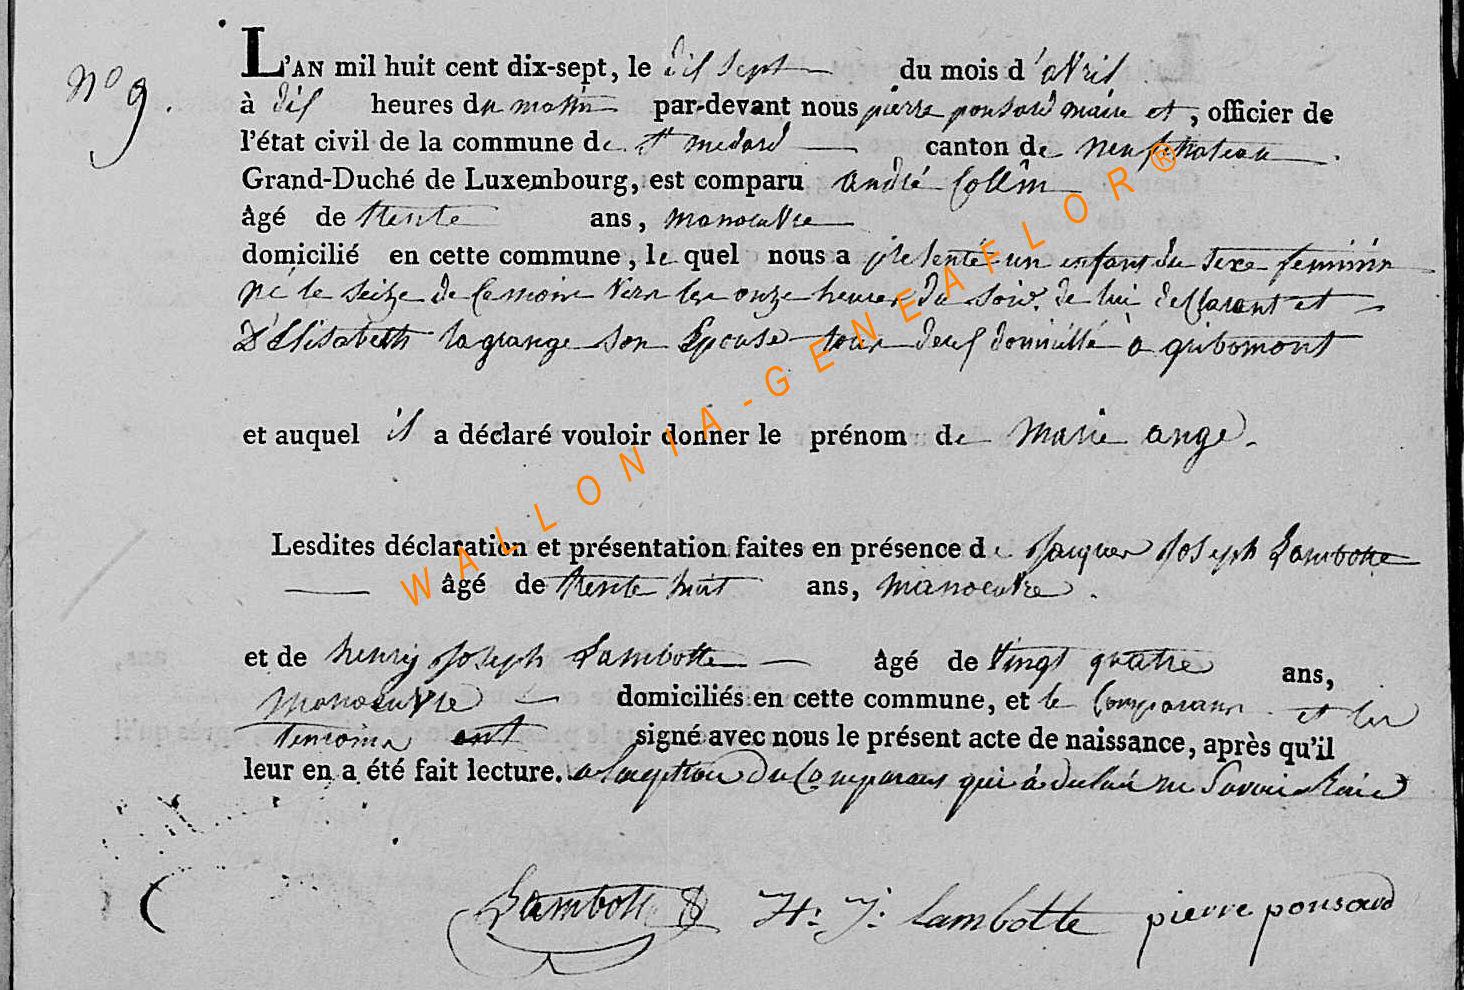 N° 9.
L'AN mil huit cent dix-sept, le dix sept du mois d'avril
à dix heures du matin par-devant nous pierre ponsard maire et, officier de
l'état civil de la commune de st medard canton de neufchateau
Grand-Duché de Luxembourg, est comparu andré Collin
âgé de trente ans, manoeuvre
domicilié en cette commune, lequel nous a présenté un enfant du sexe feminin
né le seize de ce mois vers les onze heures du soir, de lui declarant et
D'Elisabeth lagrange son Epouse tous deux domicillé à gribomont
et auquel il a déclaré vouloir donner le prénom de Marie ange.
Lesdites déclaration et présentation faites en présence de Jacques Joseph Lambotte
âgé de trente huit ans, manoeuvre.
et de henry Joseph Lambotte âgé de vingt quatre ans,
manoeuvre domiciliés en cette commune, et le Comparant et les
temoins ont signé avec nous le présent acte de naissance, après qu'il
leur en a été fait lecture. a lexeption du Comparant qui à declaré ne Savoir
Lambotte H: J: lambotte pierre ponsard
WALLONIA-GENEAFLOR®